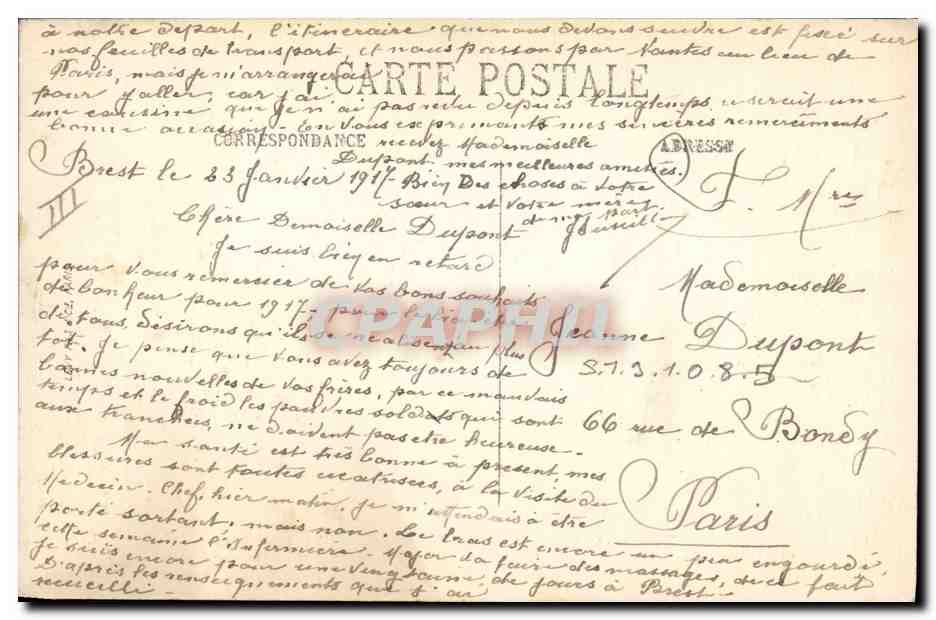 à notre départ, l'itineraire que nous devons suivre est fixé sur
nos feuilles de transport, et nous passons par Nantes au lieu de
Paris, mais je m'arrangerai
CARTE POSTALE
pour y aller, car j'ai
une cousine que je n'ai pas revu depuis longtemps, ce serait une
bonne occasion - En vous exprimants mes sincères remerciments
CORRESPONDANCE
ADRESSE
recevez Mademoiselle
Dupont mes meilleures amitiés.
Brest le 23 Janvier 1917 - Bien Des choses à votre
sœur et votre mère
de ma part.
III
F. Mres
Chère Demoiselle Dupont
Je suis bien en retard
pour vous remercier de vos bons souhaits
de bonheur pour 1917 -
de tous, désirons qu'ils se réalisent au plus
tot. Je pense que vous avez toujours de
bonnes nouvelles de vos frères, par ce mauvais
temps et le froid les pauvres soldats qui sont
aux tranchées, ne doivent pas etre heureuse -
Ma santé est très bonne à présent, mes
blessures sont toutes cicatrisées, à la visite du
Medecin - Chef, hier matin, Je m'attendais à être
porté sortant, mais non. Le bras est encore un peu engourdi,
cette semaine l'Infirmière - Major va faire des massages, de ce fait
Je suis encore pour une vingtaine de jours à Brest.
D'après les renseignements que j'ai
recueille -
CPAPHIL
Mademoiselle
Jeanne Dupont
S.T.3.1.0.8.5
66 rue de Bondy
Paris